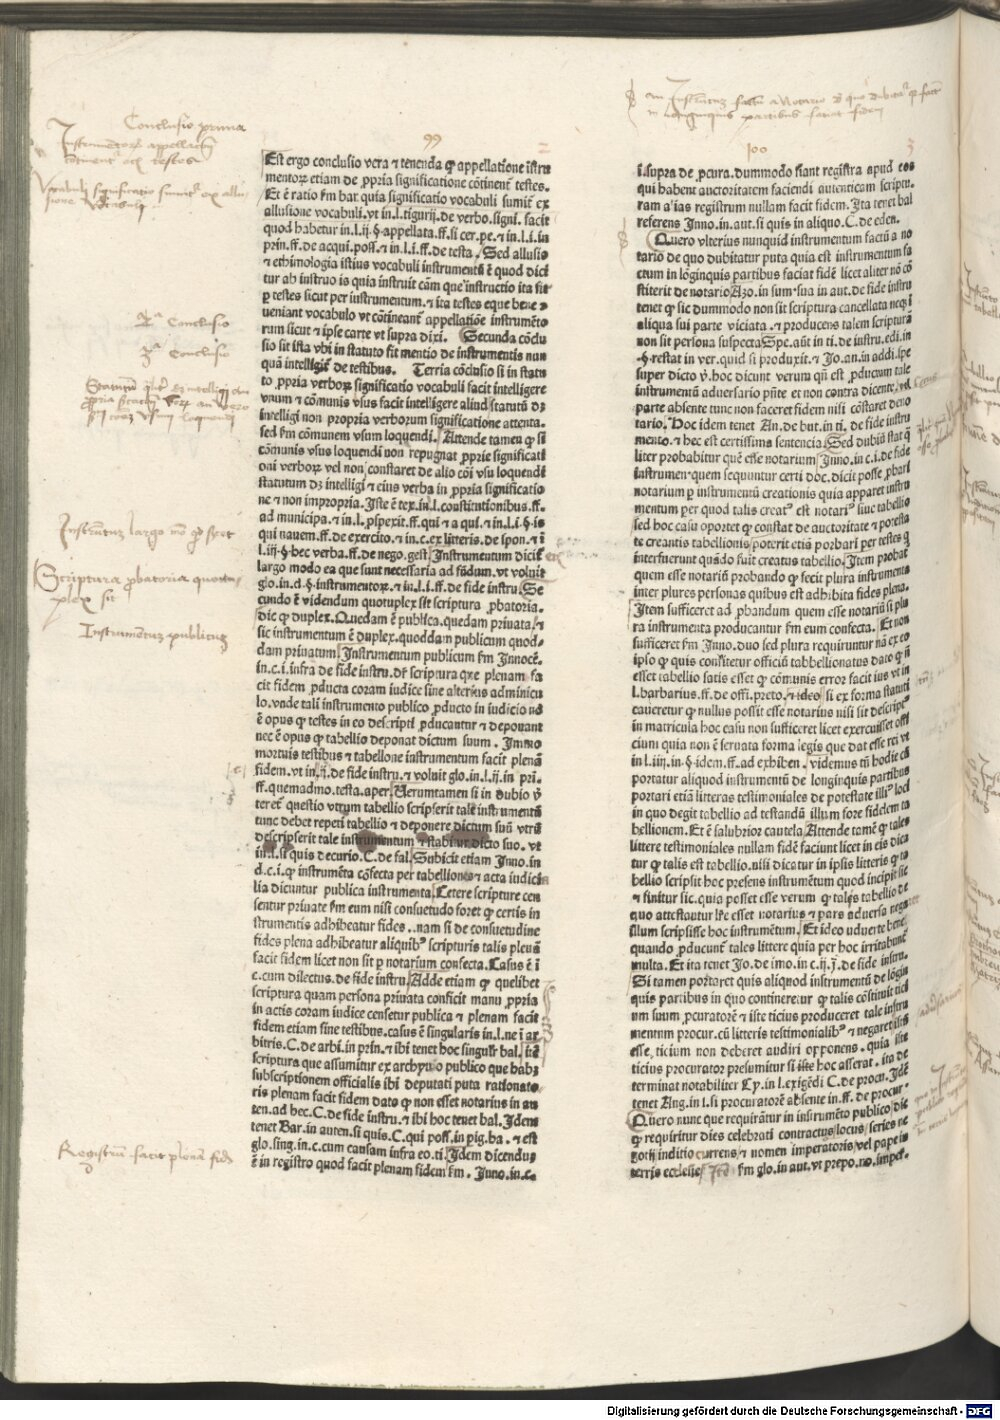 99
Est ergo conclusio vera ⁊ tenenda ꝙ appellatione ĩstru
mentorꝝ etiam de ꝓpria significatione cõtinent̃ testes.
Et ẽ ratio ẜm bar. quia significatio vocabuli sumit̃ ex
allusione vocabuli. vt in.l.tigurij.de verbo.signi. facit
quod habetur in.l.ij.§.appellata.ff.si cer.pe.⁊ in.l.i.in
prin.ff.de acqui.poss.⁊ in.l.i.ff.de testa. Sed allusio
⁊ ethimologia istius vocabuli instrumentũ ẽ quod dici
tur ab instruo is quia instruit cãm que ĩnstructio ita fit
ꝑ testes sicut per instrumentum.⁊ ita testes eque bene ↄ
ueniant vocabulo vt cõtineant̃ appellatiõe instrumẽto
rum sicut ⁊ ipse carte vt supra dixi. Secunda cõclu
sio sit ista vbi in statuto fit mentio de instrumentis nun
quã intelligit̃ de testibus. Tertia cõclusio si in statu
to ꝓpria verborꝝ significatio vocabuli facit intelligere
vnum ⁊ cõmunis vsus facit intelligere aliud statutũ dꝫ
intelligi non propria verborum significatione attenta.
sed ẜm cõmunem vsum loquendi. Attende tamen ꝙ si
cõmunis vsus loquendi non repugnat ꝓprie significati
oni verborꝝ vel non constaret de alio cõi vsu loquendi
statutum dꝫ intelligi ⁊ eius verba in ꝓpria significatio
ne ⁊ non impropria. Iste ẽ tex.in.l.constitutionibus.ff.
ad municipa.⁊ in.l.ꝓspexit.ff.qui ⁊ a qui.⁊ in.l.i.§.is
qui nauem.ff.de exercito.⁊ in.c.ex litteris.de spon.⁊ ĩ
l.iij.§.hec verba.ff.de nego.gest. Instrumentum dicit̃
largo modo ea que sunt necessaria ad fũdum.vt voluit
glo.in.d.§.instrumentorꝝ.⁊ in.l.i.ff.de fide instru. Se
cundo ẽ videndum quotuplex sit scriptura ꝓbatoria.
dic ꝙ duplex. Quedam ẽ publica.quedam priuata.⁊
sic instrumentum ẽ duplex.quoddam publicum quod-
dam priuatum. Instrumentum publicum ẜm Innocẽ.
in.c.i.infra de fide instru.dr̃ scriptura que plenam fa
cit fidem ꝓducta coram iudice sine alterius adminicu
lo.vnde tali instrumento publico ꝓducto in iudicio nõ
ẽ opus ꝙ testes in eo descripti ꝓducantur ⁊ deponant
nec ẽ opus ꝙ tabellio deponat dictum suum. Immo
mortuis testibus ⁊ tabellone instrumentum facit plenã
fidem.vt in.ij.de fide instru.⁊ voluit glo.in.l.ij.in pri.
ff.quemadmo.testa.aper. Uerumtamen si in dubio ṽ
teret̃ questio vtrum tabellio scripserit tale instrumentũ
tunc debet repeti tabellio ⁊ deponere dictum suũ vtrũ
descripserit tale instrumentum ⁊ stabitur dicto suo. vt
in.l.si quis decurio.C.de fal. Subicit etiam Inno.in
d.c.i.ꝙ instrumẽta cõfecta per tabelliones ⁊ acta iudicia
lia dicuntur publica instrumenta. Cetere scripture cen
sentur priuate ẜm eum nisi consuetudo foret ꝙ certis in
strumentis adhibeatur fides..nam si de consuetudine
fides plena adhibeatur aliquibꝰ scripturis talis plenã
facit fidem licet non sit ꝑ notarium confecta. Casus ẽ ĩ
c.cum dilectus.de fide instru. Adde etiam ꝙ quelibet
scriptura quam persona priuata conficit manu ꝓpria
in actis coram iudice censetur publica ⁊ plenam facit
fidem etiam sine testibus. casus ẽ singularis in.l.ne ĩ ar
bitris.C.de arbi.in prin.⁊ ibi tenet hoc singulr̃ bal. itẽ
scriptura que assumitur ex archyuo publico que habꝫ
subscriptionem officialis ibi deputati puta rationato-
ris plenam facit fidem dato ꝙ non esset notarius in au
ten.ad hec.C.de fide instru.⁊ ibi hoc tenet bal. Idem
tenet Bar.in auten.si quis.C.qui poss.in pig.ha.⁊ est
glo.sing.in.c.cum causam infra eo.ti. Idem dicendũ
ẽ in registro quod facit plenam fidem ẜm.Inno.in.c.
100
ĩ.supra de ꝓcura.dummodo fiant registra apud eos
qui habent auctoritatem faciendi autenticam scriptu-
ram alias registrum nullam facit fidem. Ita tenet bal
referens Inno.in.aut.si quis in aliquo.C.de eden.
Quero vlterius nunquid instrumentum factũ a no
tario de quo dubitatur puta quia est instrumentum fa
ctum in lõginquis partibus faciat fidẽ licet aliter nõ cõ
stiterit de notario Azo.in sum.sua in aut.de fide instru
tenet ꝙ sic dummodo non sit scriptura cancellata neqꝫ ĩ
aliqua sui parte viciata.⁊ producens talem scripturã
non sit persona suspecta Spe.aũt in ti.de instru.edi.in
§.restat in ver.quid si produxit.⁊ Jo.an.in addi.spe
super dicto ṽ.hoc dicunt verum qñ est ꝓductum tale
instrumentũ aduersario p̃nte et non contra dicente.vel
parte absente tunc non faceret fidem nisi cõstaret de no
tario. Hoc idem tenet An.de but.in ti.de fide instru
mento.⁊ hec est certissima sentencia. Sed dubiũ stat q̃
liter probabitur quẽ esse notarium Inno.in c.i.de fide
instrumen.quem sequuntur certi doc.dicit posse ꝓbari
notarium ꝑ instrumentũ creationis quia apparet instru
mentum per quod talis creatꝰ est notariꝰ siue tabellio
sed hoc casu oportet ꝙ constat de auctoritate ⁊ potesta
te creantis tabellionis poterit etiã porbari per testes qͥ
interfuerunt quãdo fuit creatus tabellio. Item probat̃
quem esse notariũ probando ꝙ fecit plura instrumenta
inter plures personas quibus est adhibita fides plena.
Item sufficeret ad ꝓbandum quem esse notariũ si plu
ra instrumenta producantur ẜm eum confecta. Et non
sufficeret ẜm Inno.duo sed plura requiruntur nã ex eo
ipso ꝙ quis constitetur officiũ tabbellionatus dato ꝙ nõ
esset tabellio satis esset ꝙ cõmunis error facit ius vt in
l.barbarius.ff.de offi.preto.⁊ ideo si ex forma statuti
caueretur ꝙ nullus possit esse notarius nisi sit descriptꝰ
in matricula hoc casu non sufficeret licet exercuisset offi
cium quia non ẽ seruata forma legis que dat esse rei vt
in l.iiij.in §.idem.ff.ad exhiben. videmus tñ hodie cũ
portatur aliquod instrumentũ de longinquis partibus
portari etiã litteras testimoniales de potestate illiꝰ loci
in quo degit tabellio ad testandũ illum fore fidelem ta
bellionem. Et ẽ salubrior cautela Attende tamẽ ꝙ tales
littere testimoniales nullam fidẽ faciunt licet in eis dica
tur ꝙ talis est tabellio.nisi dicatur in ipsis litteris ꝙ ta
bellio scripsit hoc presens instrumẽtum quod incipit sic
⁊ finitur sic.quia posset esse verum ꝙ talis tabellio de
quo attestantur lr̃e esset notarius ⁊ pars aduersa negaret
illum scripsisse hoc instrumẽtum. Et ideo aduerte bene
quando ꝓducunt̃ tales littere quia per hoc irritabunt̃
multa. Et ita tenet Jo.de imo.in c.ij.ĩ.de fide instru.
Si tamen portaret quis aliquod instrumentũ de lõgin
quis partibus in quo contineretur ꝙ talis cõstituit ticiũ
um suum ꝓcuratorẽ ⁊ iste ticius produceret tale instru
mentum procur.cũ litteris testimonialibꝰ ⁊ negaret istũ
esse ticium non deberet audiri opponens.quia iste
ticius procurator presumitur si iste hoc asserat. ita de
terminat notabiliter Cy.in l.exigẽdi C.de procu. Idẽ
tenet Ang.in l.si procuratorẽ absente in.ff.de procur.
Quero nunc que requirãtur in insirumẽto publico dic
ꝙ requiritur dies celebrati contractus locus series ne
gotij inditio currens ⁊ nomen imperatoris vel pape in
terris ecclesie ẜm glo.in aut.vt prepo.no.imper.
Conclusio prima
2ª Conclusio
3ª Conclusio
Scriptura probatoria quotu-
plex sit
Instrumentum publicum
Digitalisierung gefördert durch die Deutsche Forschungsgemeinschaft - DFG